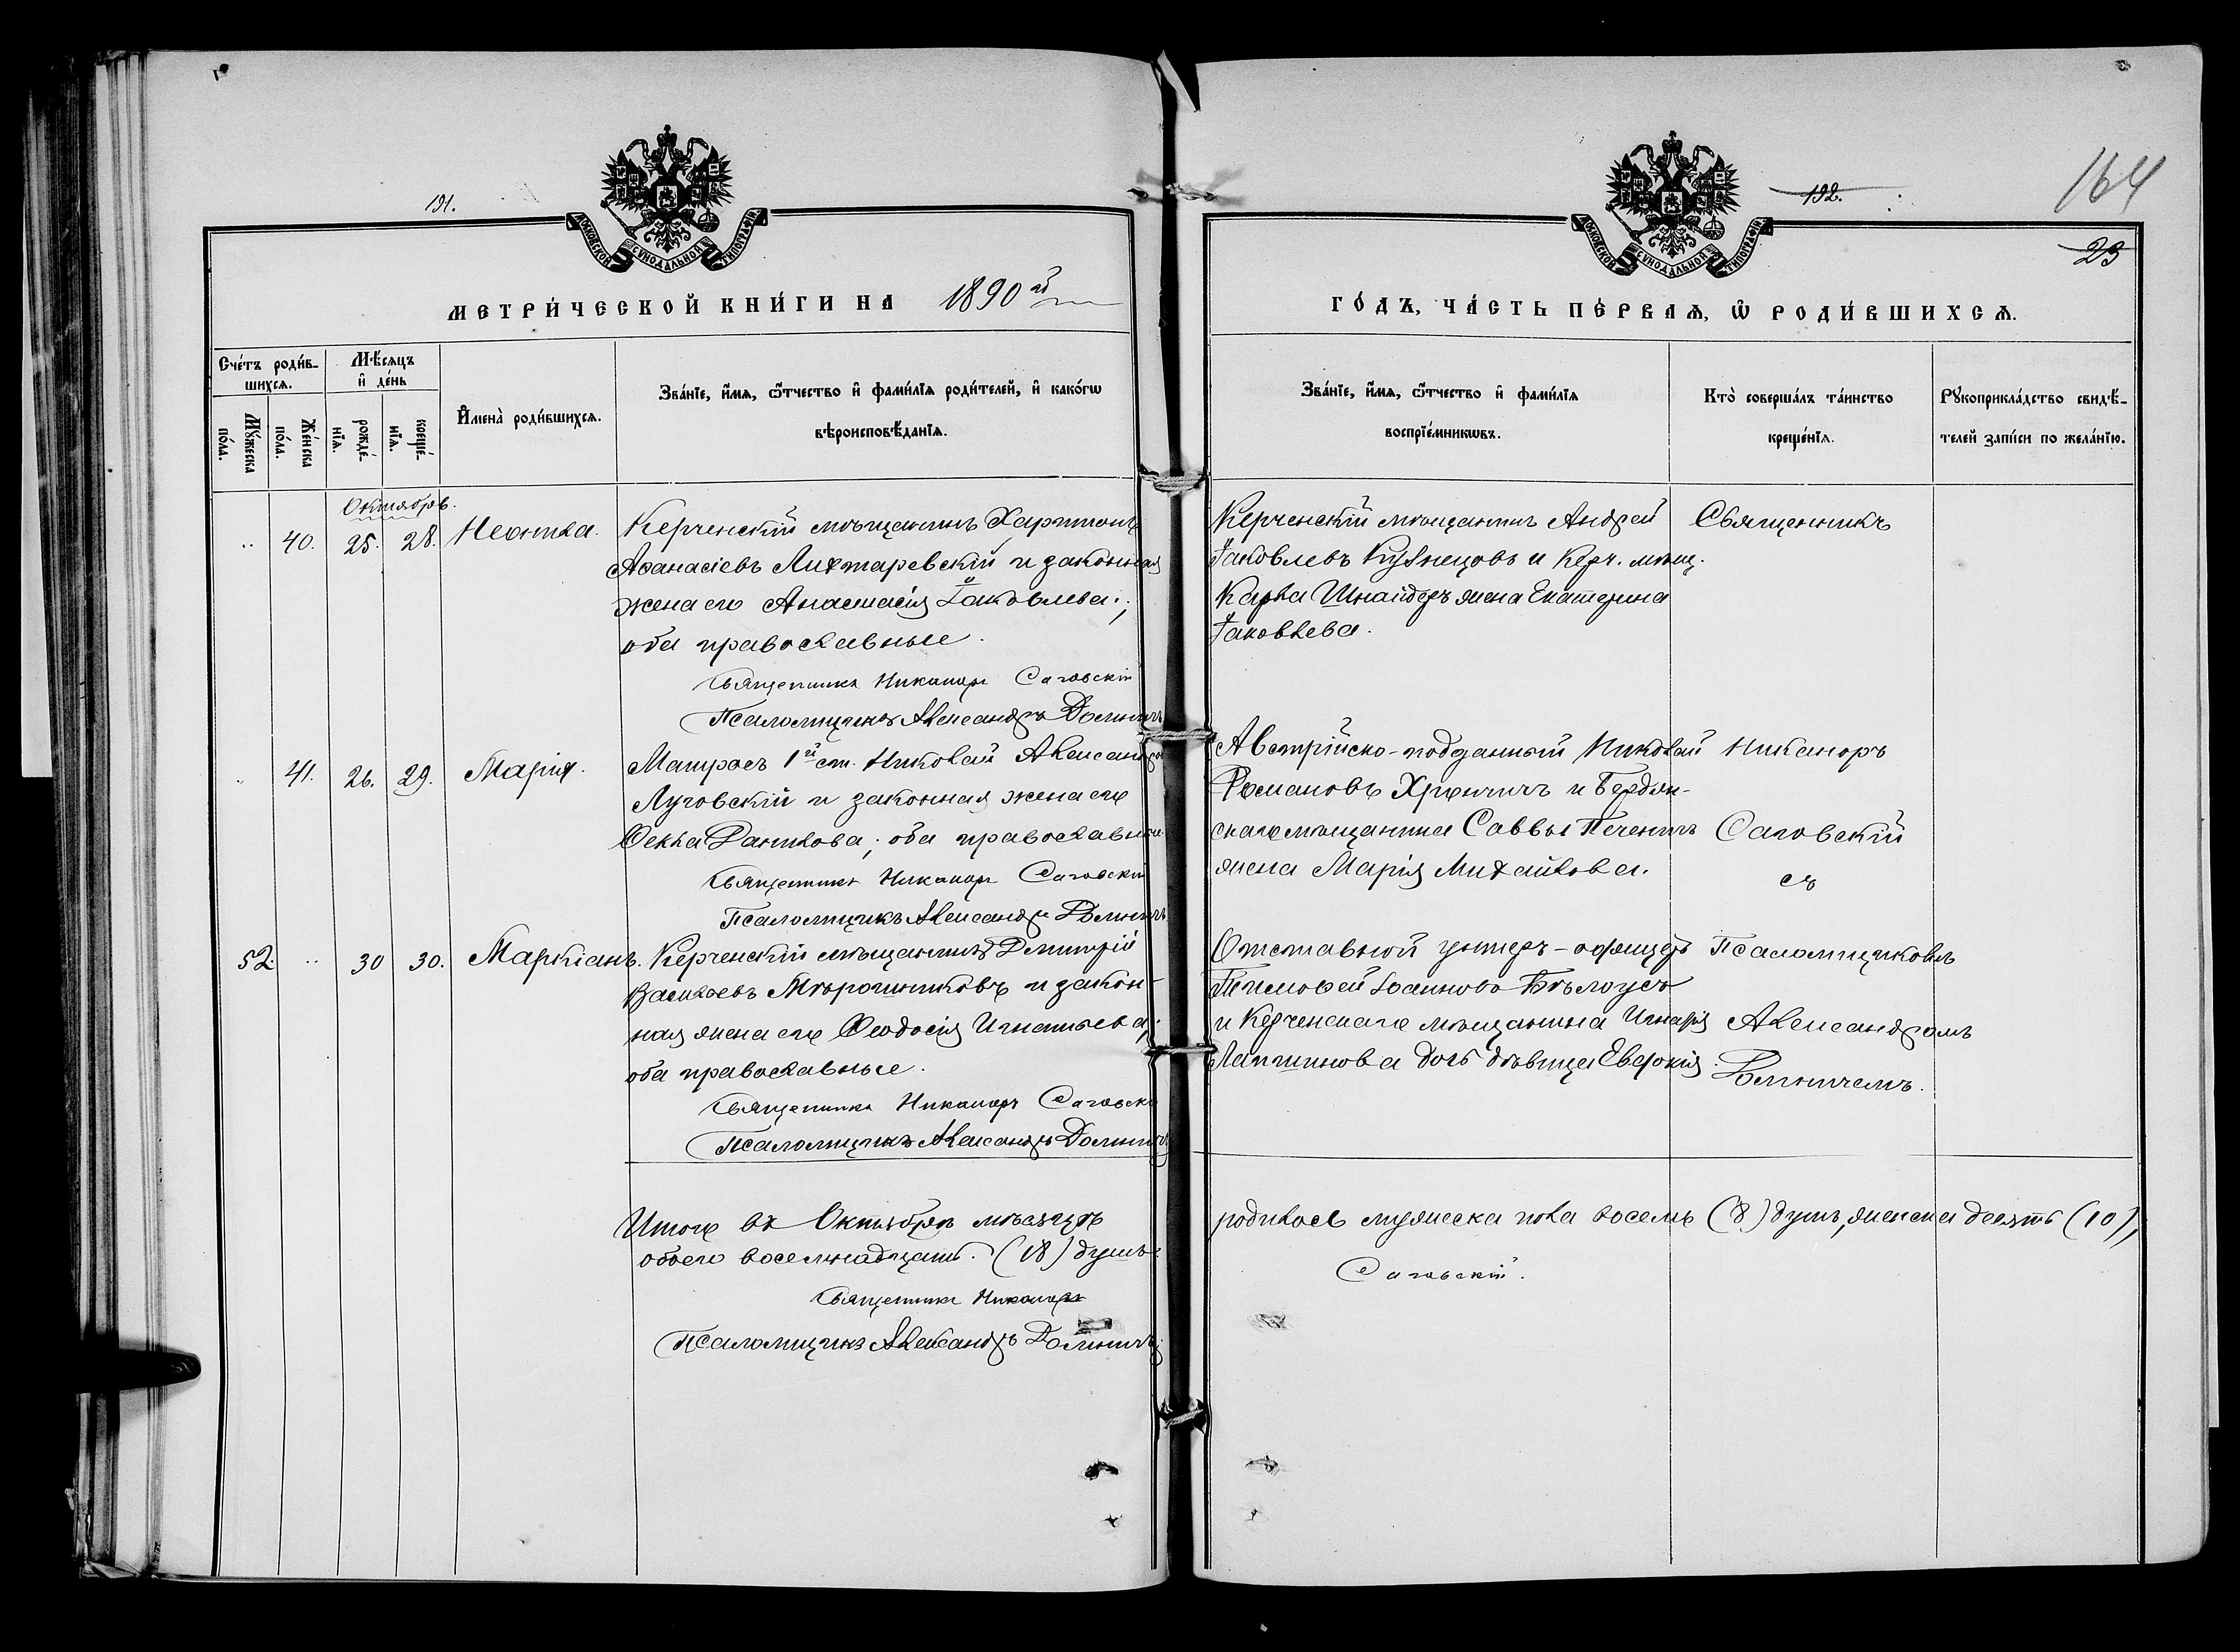 191.
МОСКОВСКОЙ СѴНОДАЛЬНОЙ ТИПОГРАФІИ
МЕТРИ́ЧЕСКОЙ КНИ́ГИ НА 1890 й
Сче́тъ роди́в-
шихсѧ.
Мѣ́сѧцъ
и҆ де́нь
Мꙋ́жеска
по́ла.
Же́нска
по́ла.
рожде́-
нїѧ.
креще́-
нїѧ.
И҆мена̀ роди́вшихсѧ.
Зва́нїе, и҆́мѧ, ѻ҆́тчество и҆ фами́лїѧ роди́телей, и҆ како́гѡ
вѣроисповѣ́данїѧ.
Октябрь.
" 40. 25. 28. Неонила.
Керченскій мѣщанинъ Харитонъ
Аѳанасіевъ Лихтаревскій и законная
жена его Анастасія Іаковлева;
оба православные.
Священникъ Никаноръ Саговскій
Псаломщикъ Александръ
" 41. 26. 29. Марія.
Матросъ 1й ст. Николай Александровъ
Луговскій и законная жена его
Ѳекла Данилова; оба православные.
Священникъ Никаноръ Саговскій
Псаломщикъ Александръ
52. " 30 30. Маркіанъ.
Керченскій мѣщанинъ Димитрій
Васильевъ Мѣрошниковъ и закон-
ная жена его Ѳеодосія Игнатьева;
оба православные.
Священникъ Никаноръ Саговскій
Псаломщикъ Александръ
Итого въ Октябрѣ мѣсяцѣ
обоего восемнадцать (18) душъ.
Священникъ Никаноръ
Псаломщикъ Александръ
192.
164
23
МОСКОВСКОЙ СѴНОДАЛЬНОЙ ТИПОГРАФІИ
ГО́ДЪ, ЧА́СТЬ ПЕ́РВАѦ, Ѽ РОДИ́ВШИХСѦ.
Зва́нїе, и҆́мѧ, ѻ҆́тчество и҆ фами́лїѧ
воспрїе́мникѡвъ.
Кто̀ соверша́лъ та́инство
креще́нїѧ.
Рꙋкоприкла́дство свидѣ́-
телей за́писи по жела́нїю.
Керченскій мѣщанинъ Андрей
Іаковлевъ Кузнецовъ и Керч. мѣщ.
Карла Шнайдеръ жена Екатерина
Іаковлева.
Австрійско-подданный Николай
Романовъ и Бердян-
скаго мѣщанина Саввы
жена Марія Михайлова.
Отставной унтеръ-офицеръ
Тимоѳей Іоанновъ Бѣлоусъ
и Керченскаго мѣщанина
Лапшинова дочь дѣвица Евдокія.
Священникъ
Никаноръ
Саговскій
съ
Псаломщикомъ
Александромъ
родилось мужеска пола восемь (8) душъ, женска десять (10),
Саговскій.